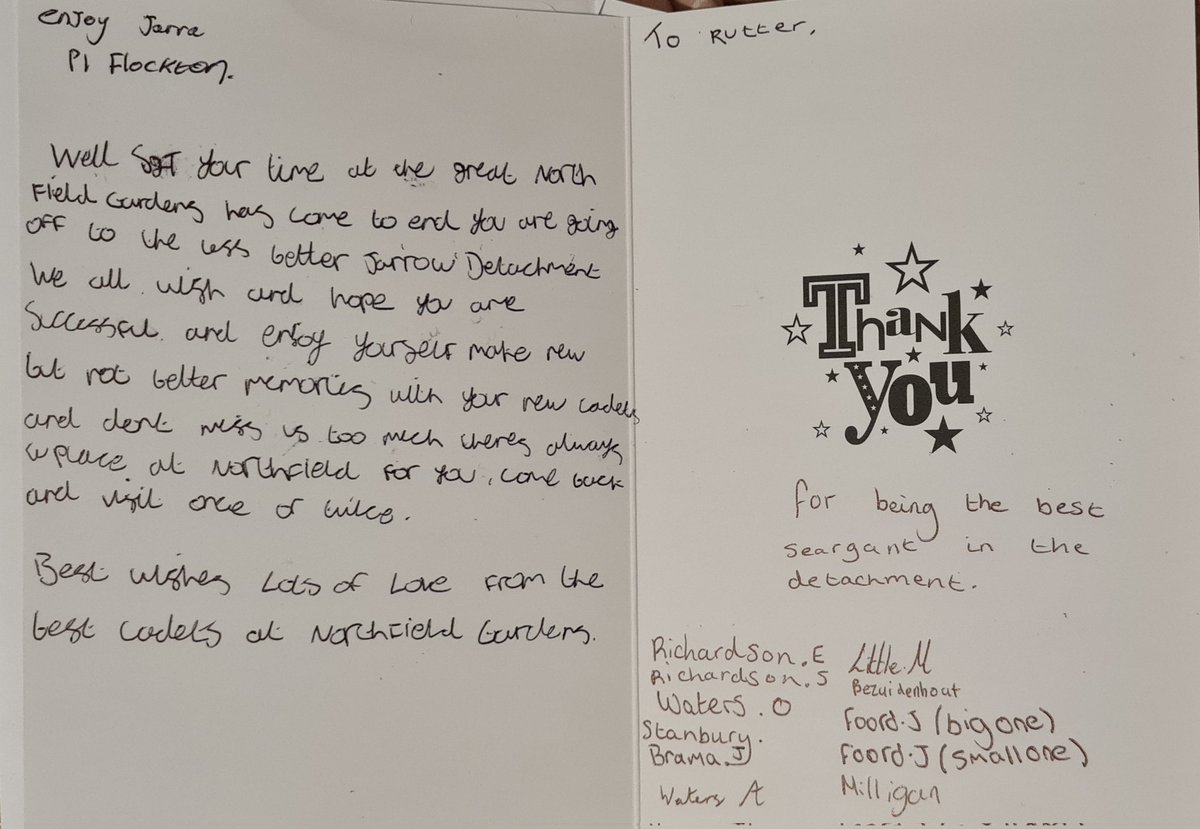 enjoy Jarra
PI Flockton.
Well SgT your time at the great North
Field Gardens has come to end you are going
off to the less better Jarrow Detachment
We all wish and hope you are
Successful. and enjoy yourself make new
but not better memories with your new cadets
and dont miss us too much theres always
a place at Northfield for you, come back
and visit once or twice.
Best wishes Lots of Love from the
best cadets at Northfield Gardens.
To Rutter,
Thank
you
for being the best
seargant in the
detachment.
Richardson.E
Richardson.S
Waters.O
Stanbury.
Brama.J
Waters A
Little.M
Bezuidenhout
Foord.J (big one)
Foord.J (small one)
Milligan